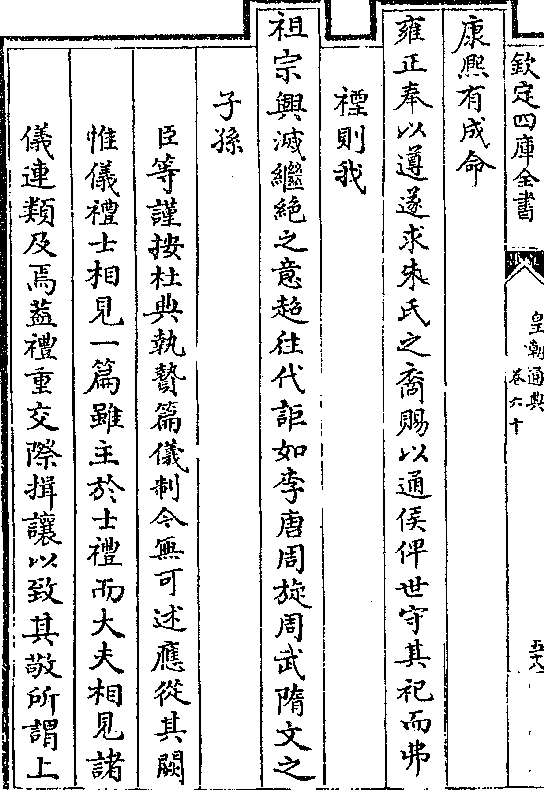 欽定四庫全書
皇朝通典
卷六十
康熙有成命
雍正奉以遵遂求朱氏之裔賜以通侯俾世守其祀而弗
禋則我
祖宗興滅繼絶之意超往代詎如李唐周旋周武隋文之
子孫
臣等謹按杜典執贄篇儀制令無可述應從其闕
惟儀禮士相見一篇雖主於士禮而大夫相見諸
儀連類及焉葢禮重交際揖讓以致其敬所謂上